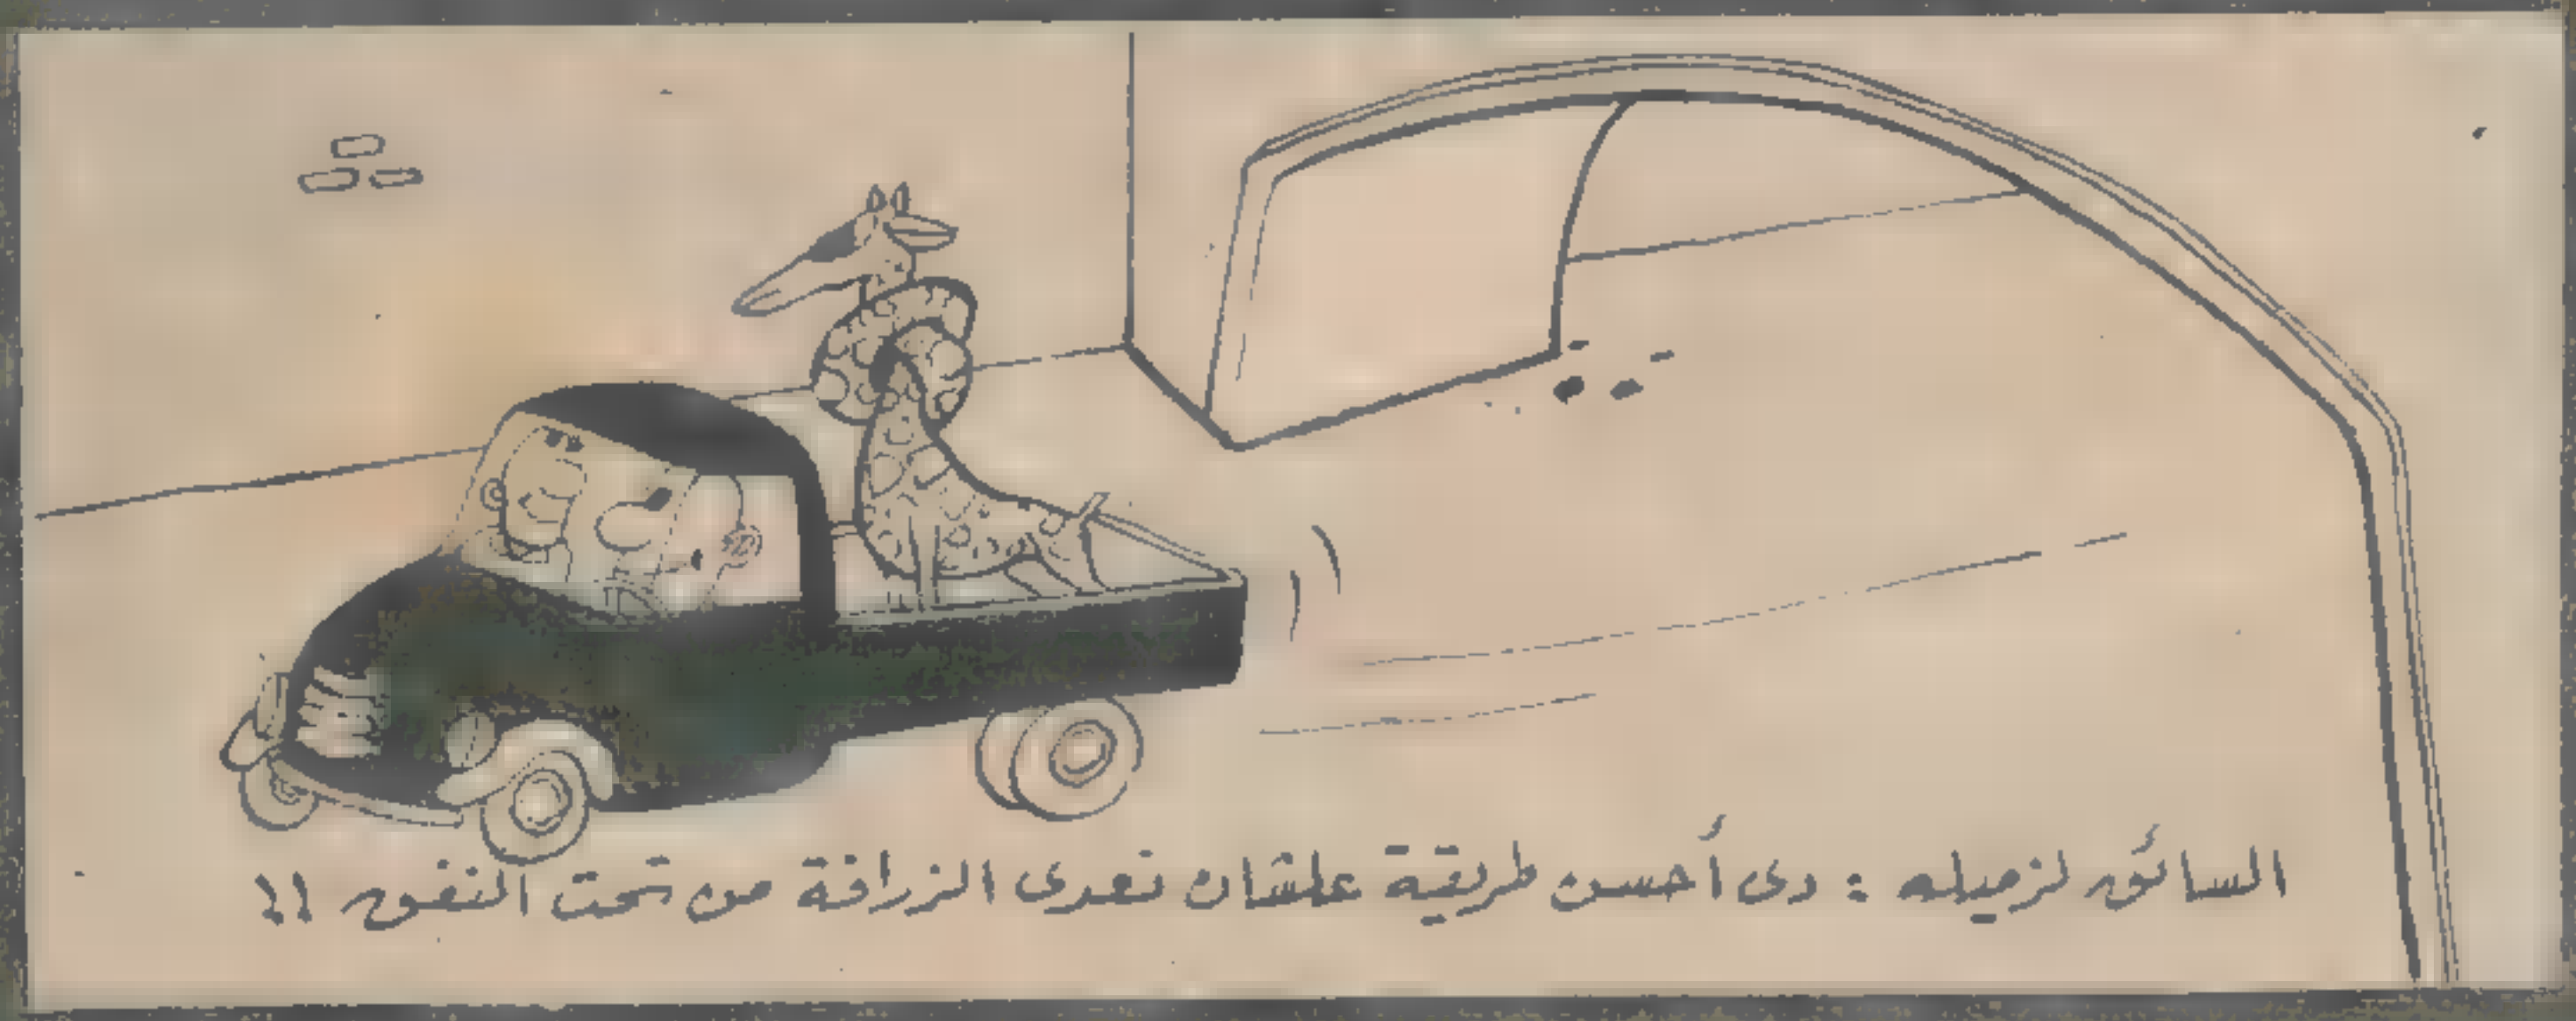 السائق لزميله : دى أحسن طريقة علشان نعدى الزرافة من تحت النفق !!